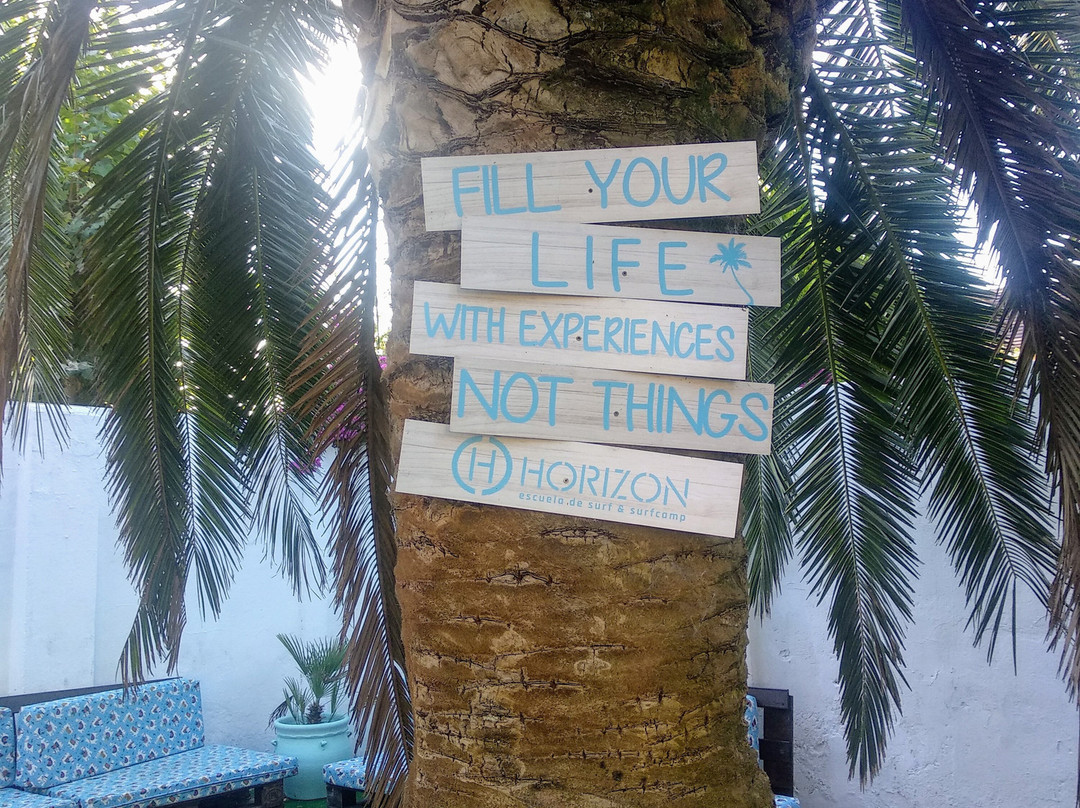 FILL YOUR
LIFE
WITH EXPERIENCES
NOT THINGS
H HORIZON
escuela de surf & surfcamp